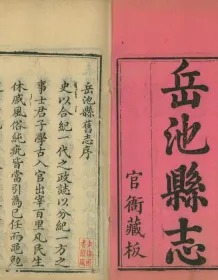 岳池縣志
官衙藏板
岳池縣舊志序
史以合紀一代之政誌以分紀一方之
事士君子學古入官出宰百里凡民生
休戚風俗純疵皆當引為己任而黽勉